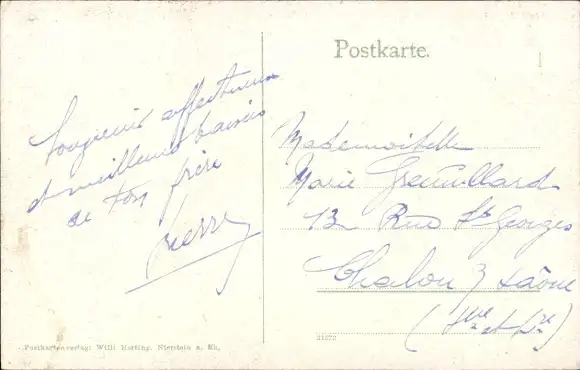 Postkarte.
Souvenir affectueux
et meilleurs baisers
de ton frère
Pierre
Mademoiselle
Marie Grémillard
13 Rue St Georges
Chalon s/ Saône
(Sne et Lre)
Postkartenverlag: Willi Horting, Nierstein a. Rh.
21272